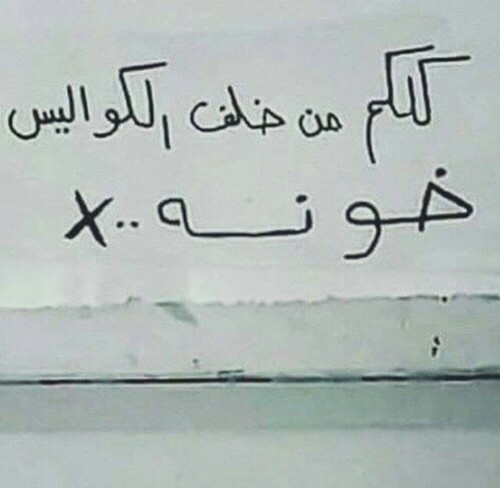 كلكم من خلف الكواليس
خونـــه ..X